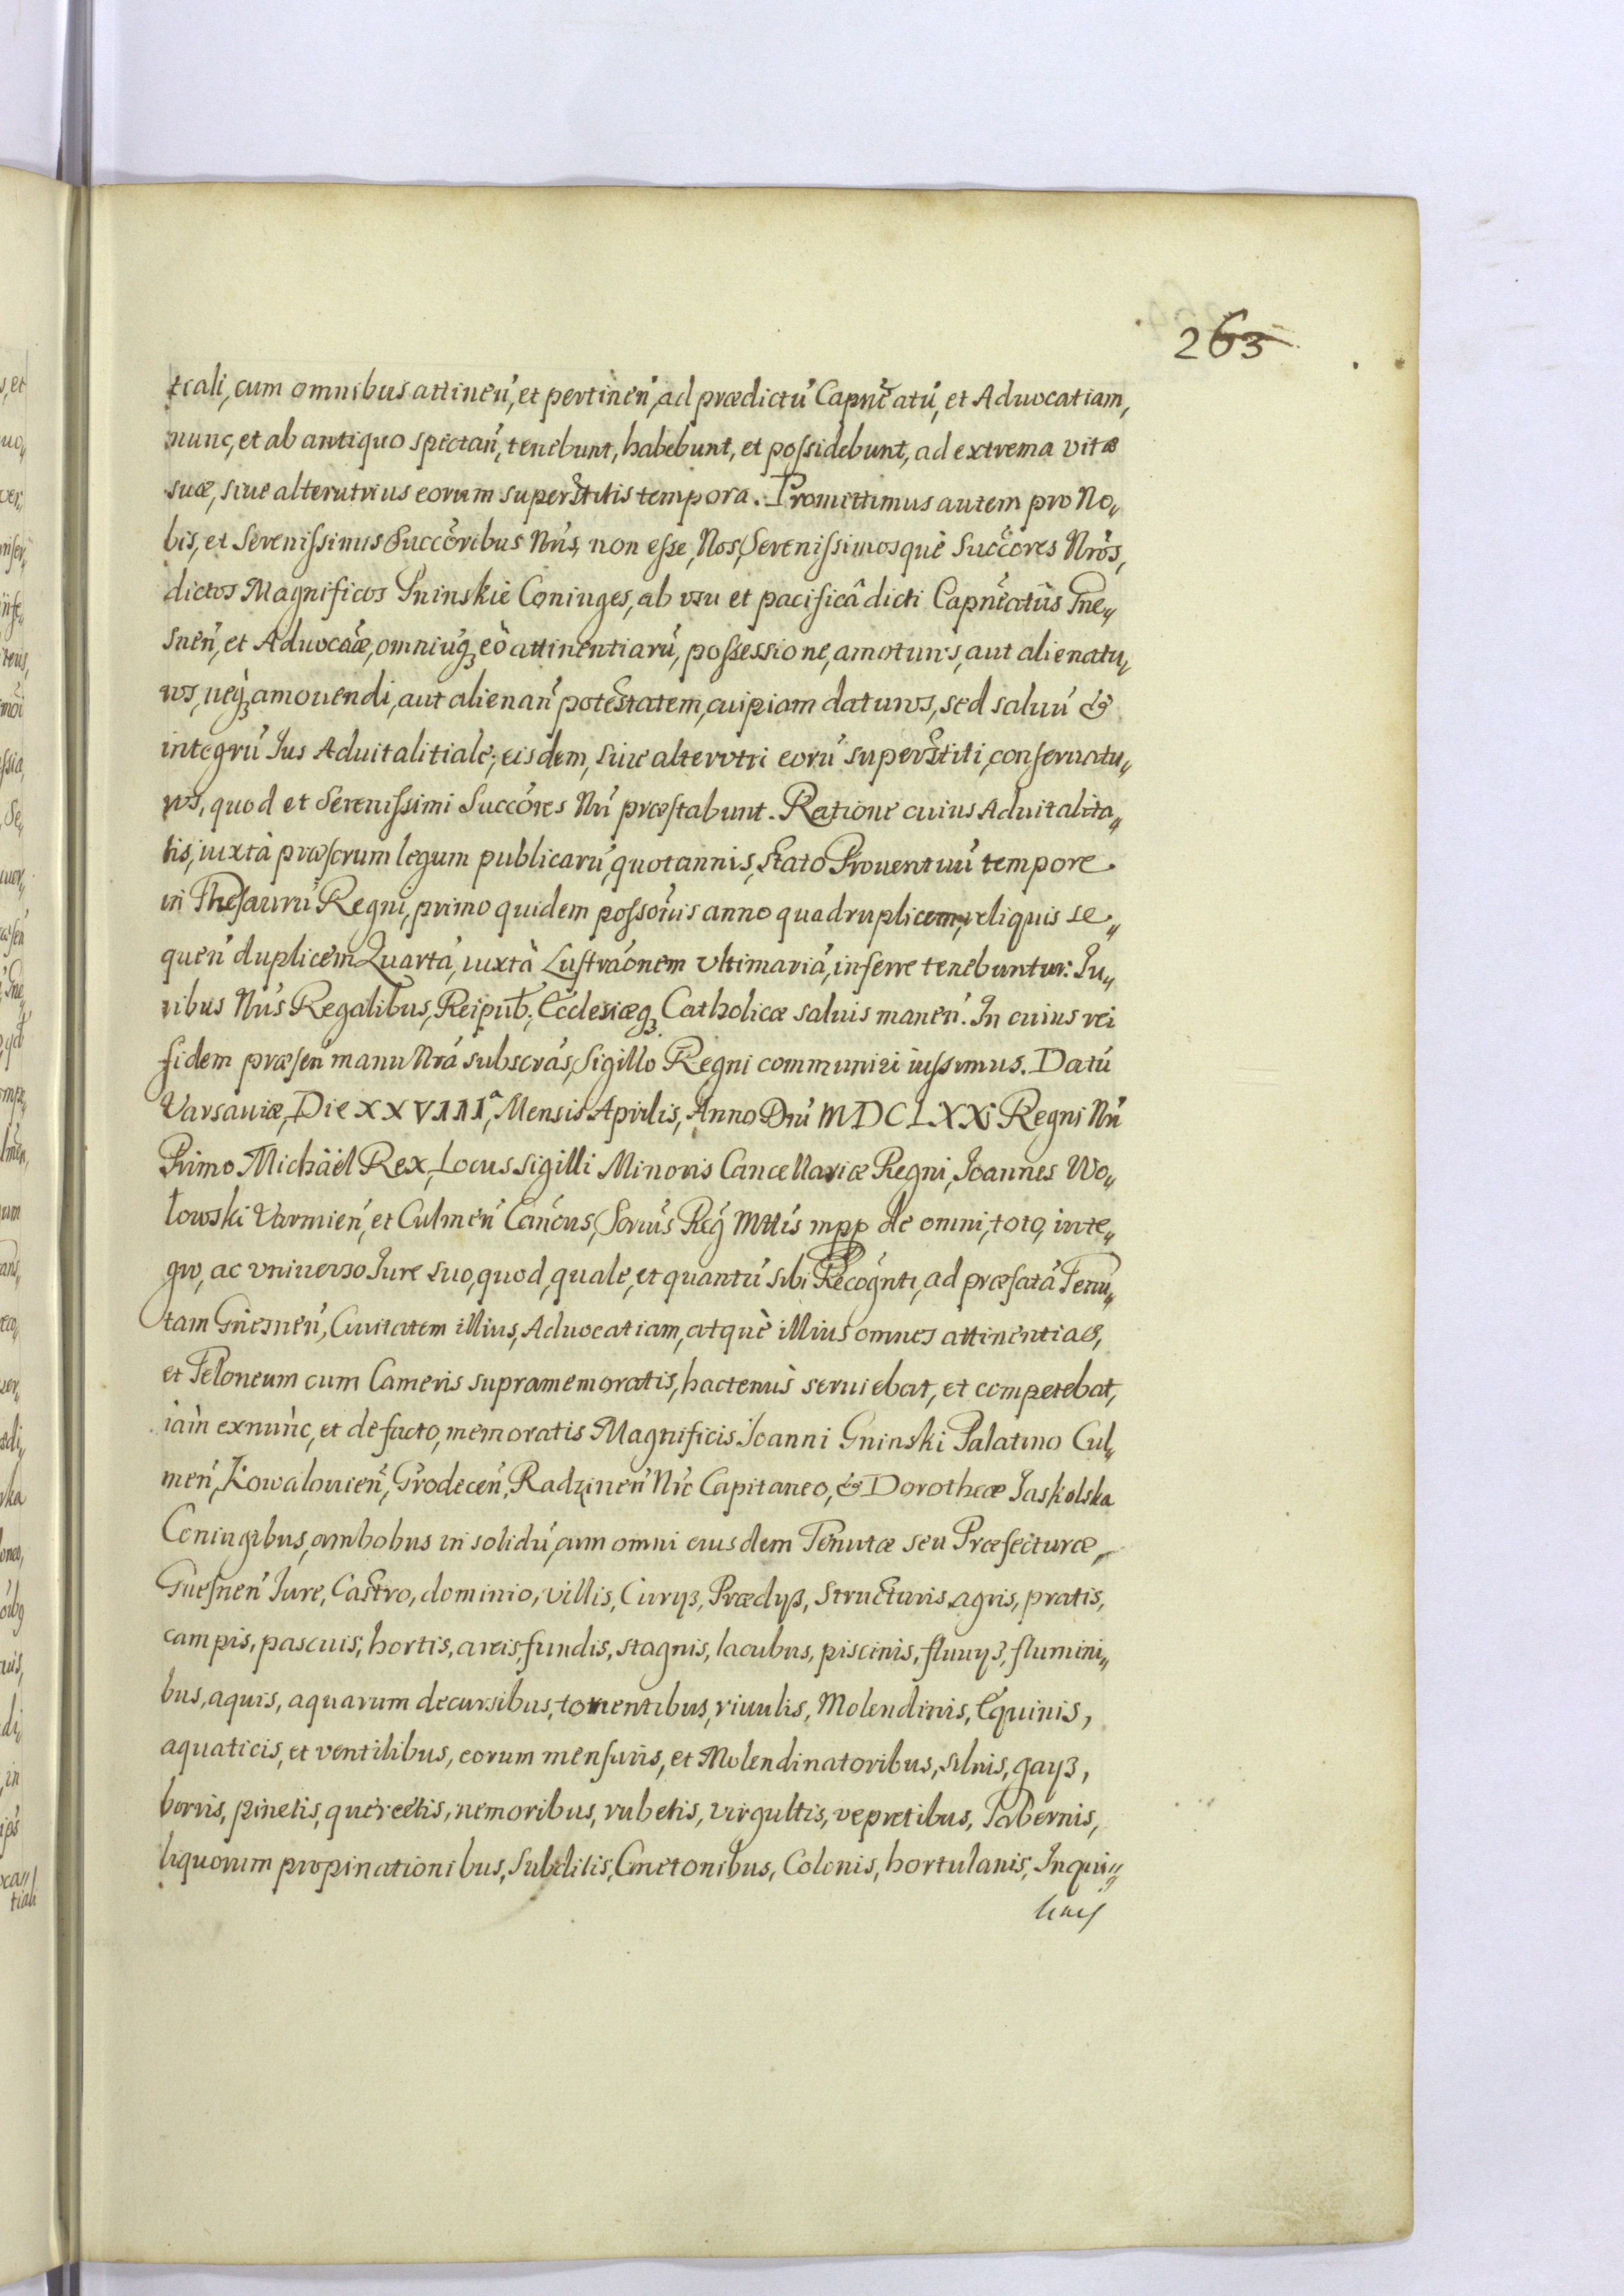 263
tiali, cum omnibus attineń, et pertinen̄, ad prædictú Capnẽatú, et Aduocatiam,
nunc, et ab antiquo spectań, tenebunt, habebunt, et possidebunt, ad extrema vitæ
suæ, siue alterutrius eorum superstitis tempora. Promittimus autem pro No„
bis, et Serenissimis Succõribus Nr̃is, non esse, Nos, Serenissimosquè Succõres Nr̃os,
dictos Magnificos Gninskie Coniuges, ab vsu et pacificâ dicti Capnẽatûs Gne„
snen̄, et Aduocãæ, omniuq̃ eò attinentiarú, possessione, amoturos, aut alienatu„
ros, neq̃ amouendi, aut alienań potestatem, cuipiam daturos, sed saluú &
integrú Ius Aduitalitiale, eisdem, siue alterutri eorú superstiti, conseruatu„
ros, quod et Serenissimi Succõres Nr̃i præstabunt. Ratione cuius Aduitalita„
tis, iuxtà præscrum legum publicarú, quotannis, stato Prouentuú tempore
in Thesaurú Regni, primo quidem possõnis anno quadruplicem, reliquis se„
queń duplicem Quartá, iuxtà Lustrãonem vltimariá, inferre tenebuntur: Iu„
ribus Nr̃is Regalibus, Reipub:, Ecclesiæq̃ Catholicæ saluis maneń. In cuius rei
fidem præseń manu Nr̃á subscrás, Sigillo Regni communiri iussimus. Datú
Varsauiæ, Die XXVIIIᵃ, Mensis Aprilis, Anno Dñi MDCLXX: Regni Nr̃i
Primo Michäel Rex, Locus sigilli Minoris Cancellariæ Regni, Joannes Wo„
łowski Varmień, et Culmeń Canõus, Sõrius Reg̃ Mttis mpp de omni, toto, inte„
gro, ac vniuerso Iure suo, quod, quale, et quantú sibi Recógnti, ad præfatá Tenu„
tam Gnesneń, Ciuitatem illius, Aduocatiam, atquè illius omnes attinentias,
et Teloneum cum Cameris supramemoratis, hactenùs seruiebat, et competebat,
iàm exnùnc, et de facto, memoratis Magnificis Joanni Gninski Palatino Cul„
meń, Kowalouień, Grodeceń, Radzineń Nr̃o Capitaneo, & Dorotheæ Jaskolska
Coniugibus, ambobus in solidú, cum omni eiusdem Tenutæ seu Præfecturæ
Gnesneń Iure, Castro, dominio, villis, Curijs, Prædijs, Structuris agris, pratis,
campis, pascuis, hortis, areis, fundis, stagnis, lacubus, piscinis, fluuijs, flumini„
bus, aquis, aquarum decursibus, torrentibus, riuulis, Molendinis, Equinis,
aquaticis, et ventilibus, eorum mensuris, et Molendinatoribus, siluis, gays,
borris, pinetis, quercetis, nemoribus, rubetis, virgultis, vepretibus, Tabernis,
liquorum propinationibus, Subditis, Cmetonibus, Colonis, hortulanis, Inqui„
linis